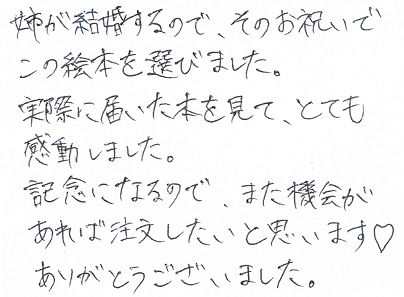 姉が結婚するので、そのお祝いで
この絵本を選びました。
実際に届いた本を見て、とても
感動しました。
記念になるので、また機会が
あれば注文したいと思います♡
ありがとうございました。